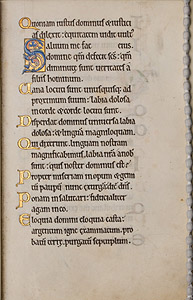 Quoniam iustus dominus & iusticias
dilexit: equitatem uidit uult
Saluum me fac
domine qm defecit scs: qm
diminute sunt ueritates a
filiis hominum.
Uana locuti sunt unusquisq; ad
proximum suum: labia dolosa
in corde & corde locuti sunt.
Disperdat dominus uniuersa labia
dolosa: & linguam magniloquam.
Qui dixerunt. linguam nostram
magnificabimus, labia nra a nob
sunt: quis noster dominus est.
Propter miseriam inopum & gemi
tum paupum nunc exurgam dic dns.
Ponam in salutari: fiducialiter
agam in eo.
Eloquia domini eloquia casta:
argentum igne examinatum. pro
batum terre, purgatum septuplum.